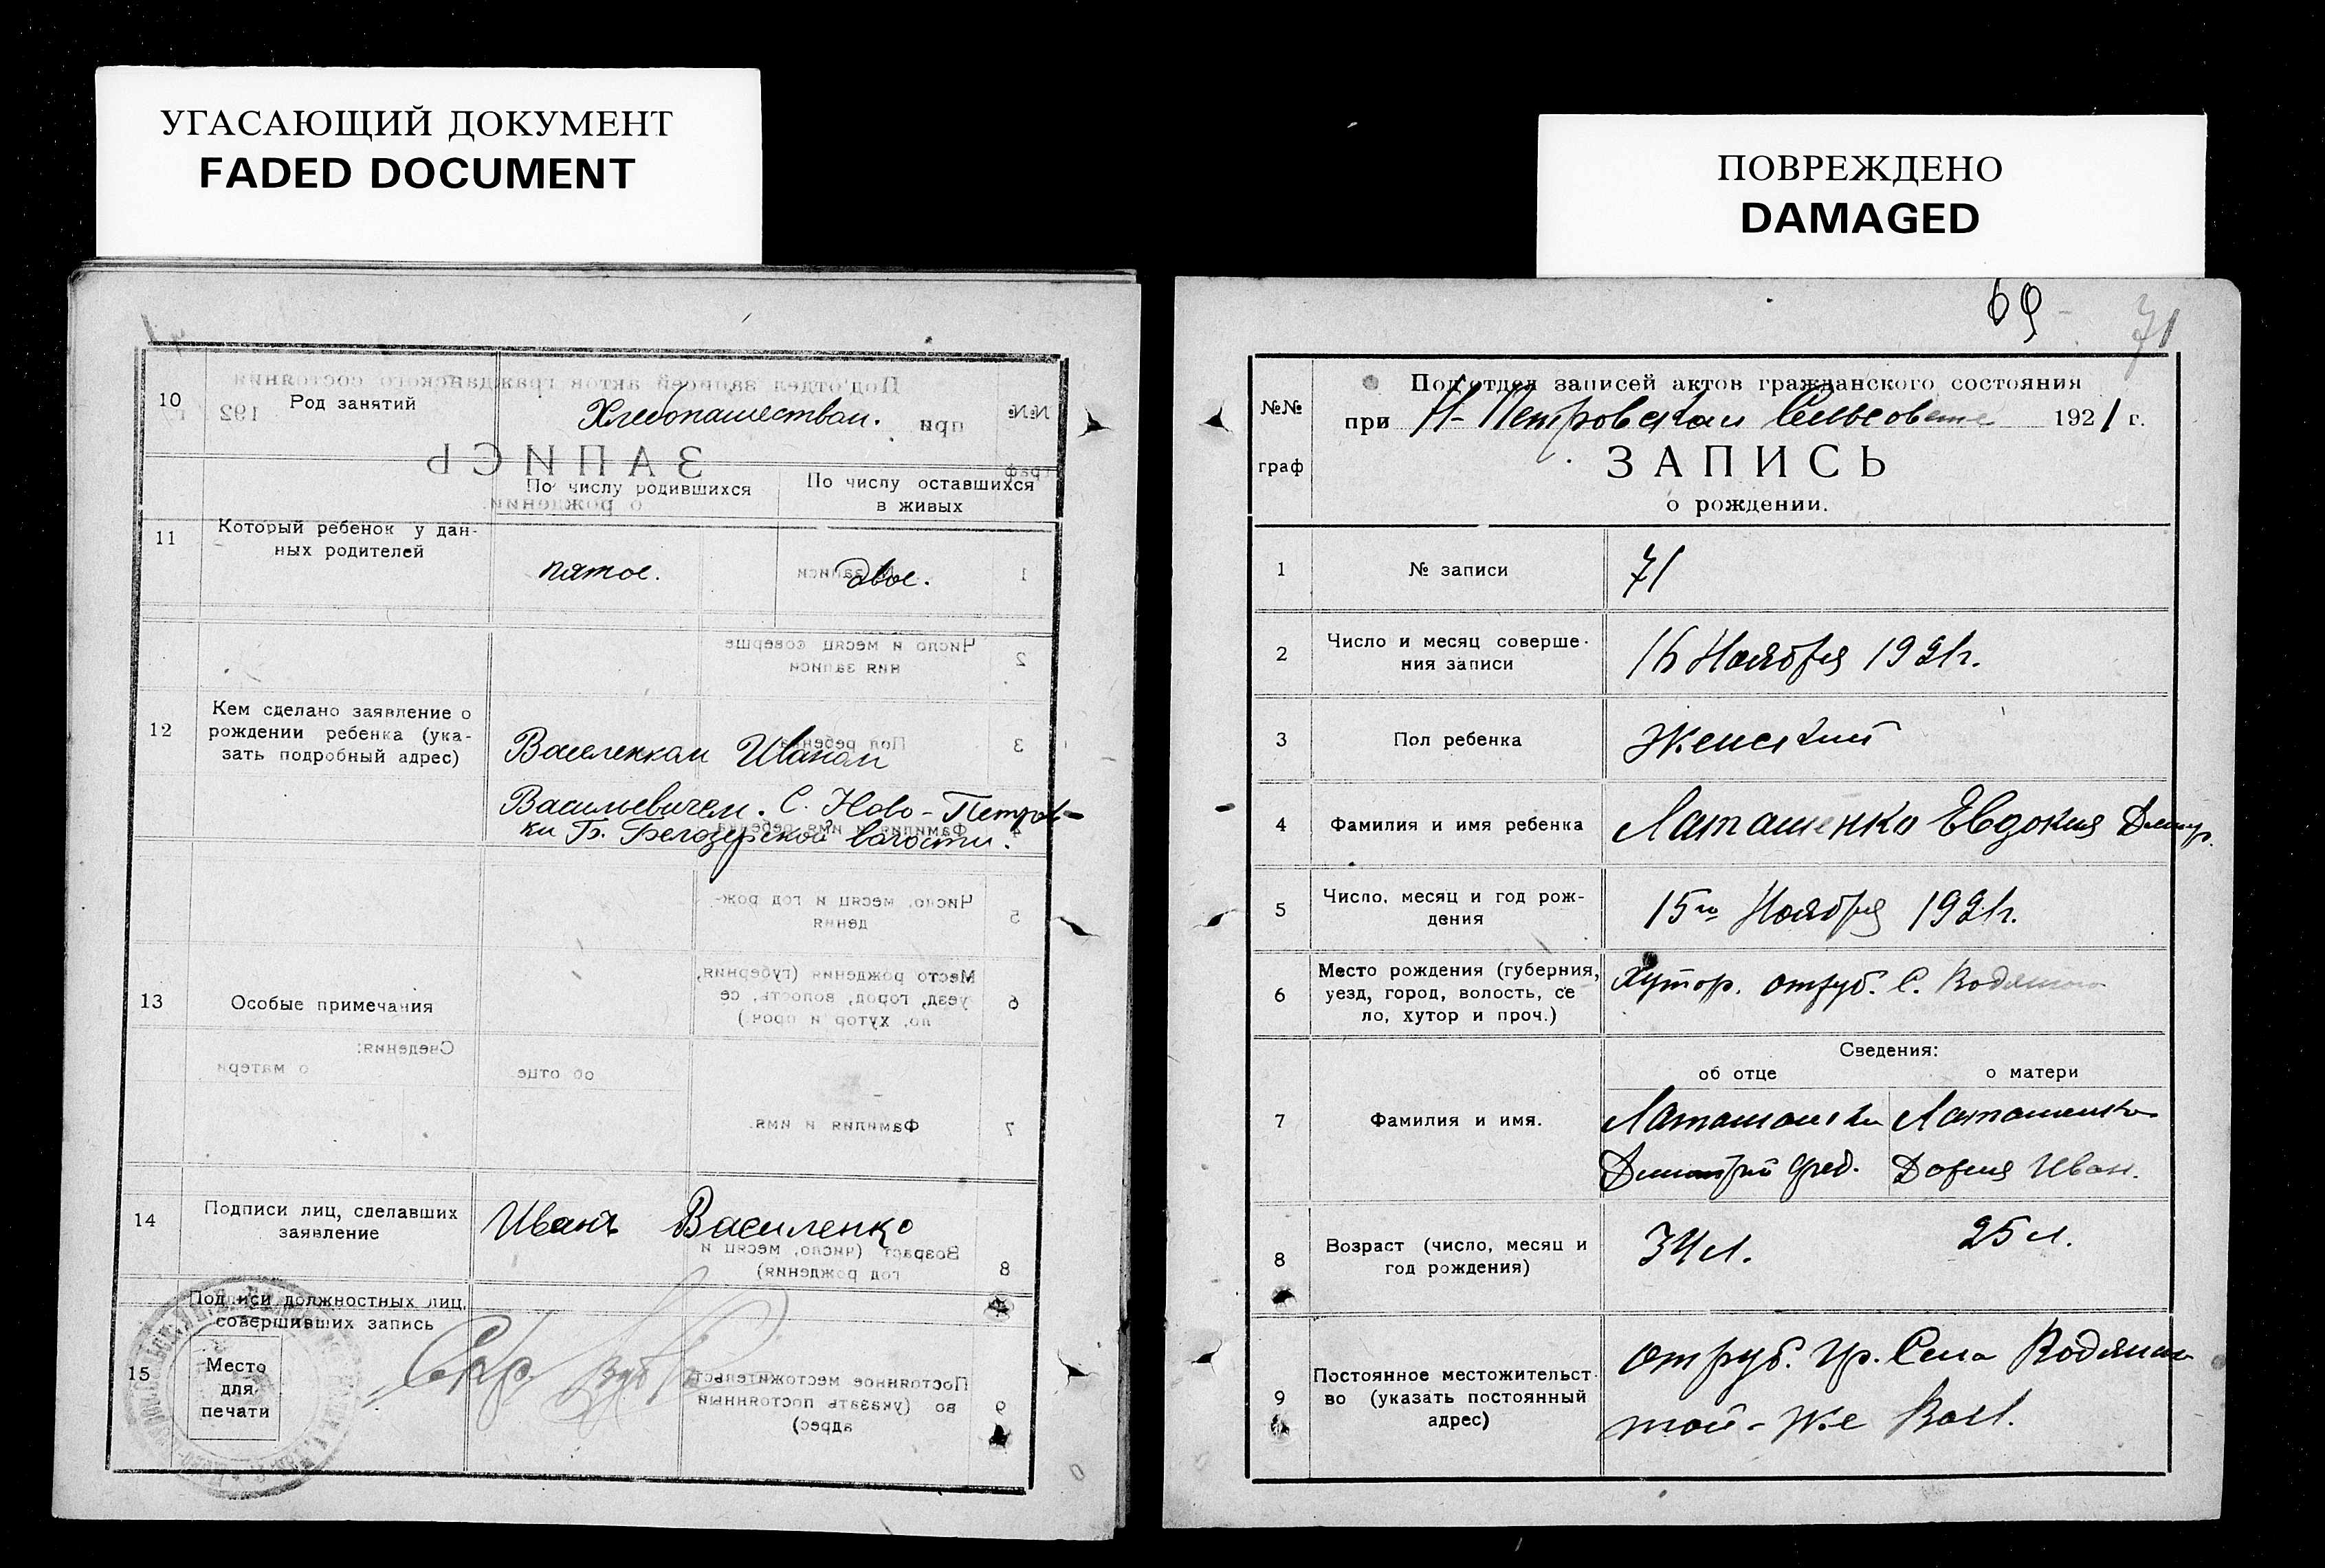 УГАСАЮЩИЙ ДОКУМЕНТ
FADED DOCUMENT
10
Род занятий
Хлебопашеством.
По числу родившихся
По числу оставшихся
в живых
11
Который ребенок у дан-
ных родителей
пятое.
двое.
12
Кем сделано заявление о
рождении ребенка (ука-
зать подробный адрес)
Василенком Иваном
Васильевичем. С. Ново-Петров-
ки Б. Белозерской волости.
13
Особые примечания
14
Подписи лиц, сделавших
заявление
Иванъ Василенко
15
Подписи должностных лиц,
совершивших запись
Место
для
печати
Секр.
ПОВРЕЖДЕНО
DAMAGED
69
71
№№
граф
Под'отдел записей актов гражданского состояния
при Н-Петровском Сельсовете 1921 г.
ЗАПИСЬ
о рождении.
1
№ записи
71
2
Число и месяц соверше-
ния записи
16 Ноября 1921г.
3
Пол ребенка
Женский
4
Фамилия и имя ребенка
Латашенко Евдокия Дмитр.
5
Число, месяц и год рож-
дения
15го Ноября 1921г.
6
Место рождения (губерния,
уезд, город, волость, се
ло, хутор и проч.)
Хутор. отруб. С. Водяного
Сведения:
об отце
о матери
7
Фамилия и имя.
Латашенко
Латашенко
Дмитрий Фед.
Дария Иван.
8
Возраст (число, месяц и
год рождения)
34 л.
25 л.
9
Постоянное местожительст-
во (указать постоянный
адрес)
отруб. гр. Села Водяного
той-же Вол.